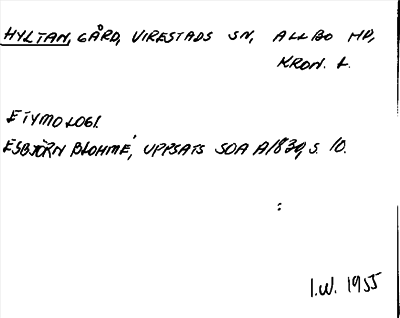 HYLTAN, GÅRD, VIRESTADS SN, ALLBO HD,
KRON. L.
ETYMOLOGI.
ESBJÖRN BLOHMÉ, UPPSATS SOA A1830, S. 10.
:
I.W. 1955